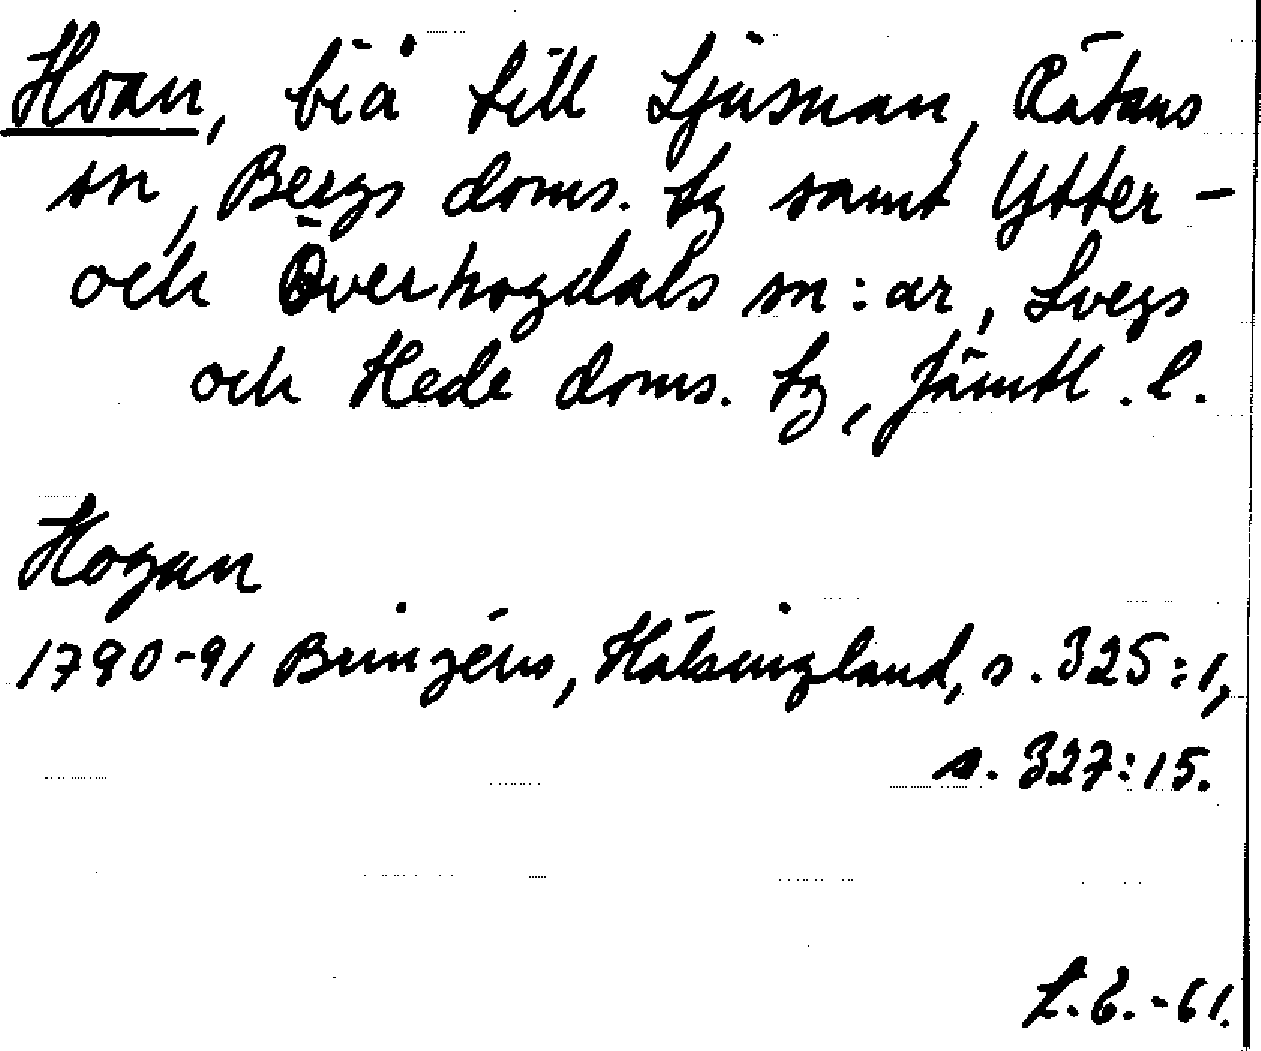 Hoan, biå till Ljusnan, Rätans
sn, Bergs doms. tg samt Ytter-
och Överhogdals sn:ar, Svegs
och Hede doms. tg, Jämtl. l.
Hogan
1790-91 Bünzens, Hälsingland, s. 325:1,
s. 327:15.
L.E.-61.